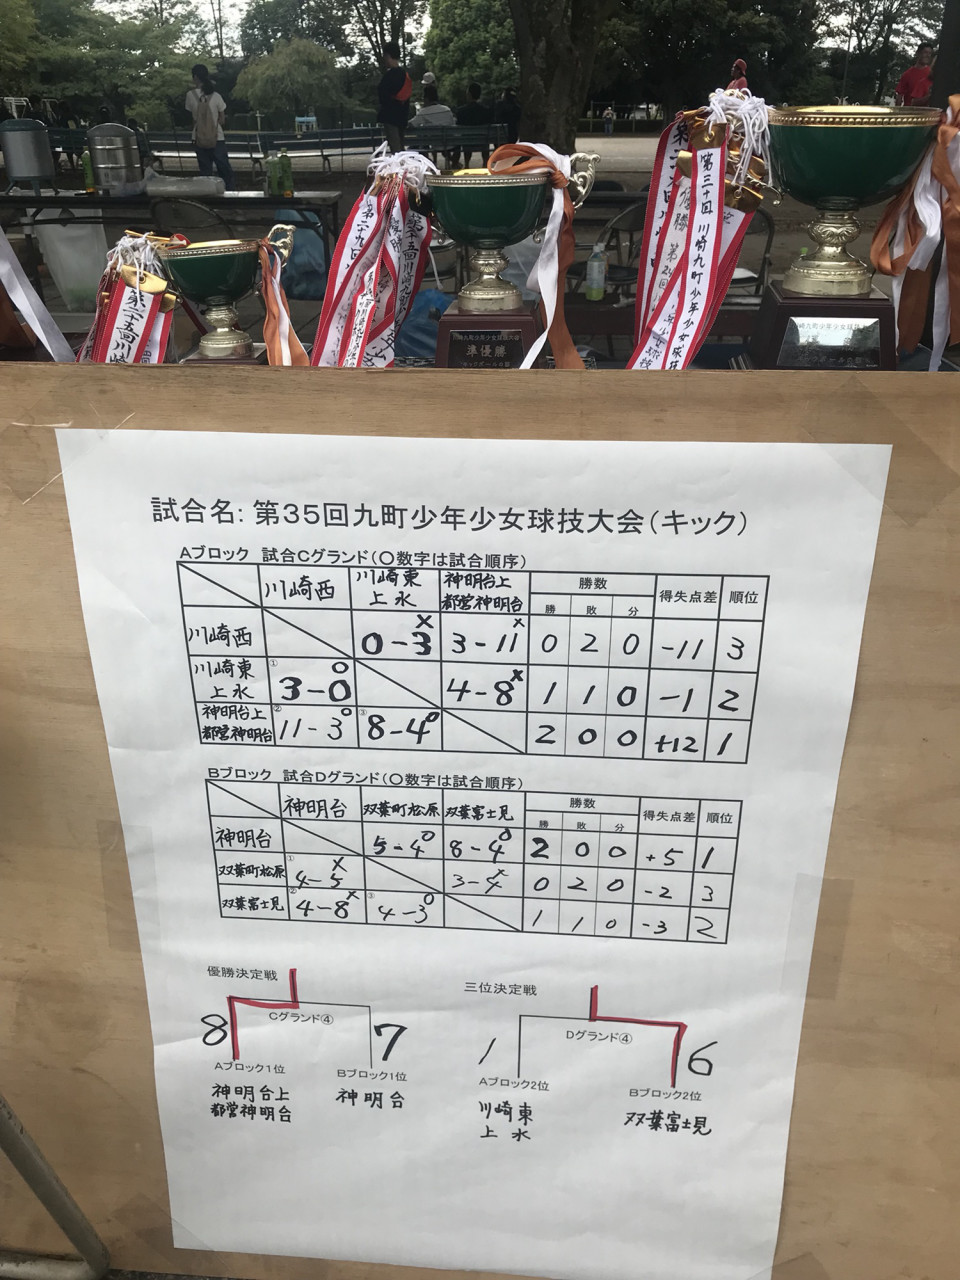 第三十回 川崎九町少年少女球技
準優勝
試合名: 第35回九町少年少女球技大会(キック)
Aブロック 試合Cグランド(〇数字は試合順序)
川崎西 川崎東上水 神明台上都営神明台 勝数 得失点差 順位
勝 敗 分
川崎西 0-3 × 3-11 × 0 2 0 -11 3
川崎東上水 ① 3-0 ○ 4-8 × 1 1 0 -1 2
神明台上都営神明台 ② 11-3 ○ ③ 8-4 ○ 2 0 0 +12 1
Bブロック 試合Dグランド(〇数字は試合順序)
神明台 双葉町松原 双葉富士見 勝数 得失点差 順位
勝 敗 分
神明台 5-4 ○ 8-4 ○ 2 0 0 +5 1
双葉町松原 ① 4-5 × 3-4 × 0 2 0 -2 3
双葉富士見 ② 4-8 × ③ 4-3 ○ 1 1 0 -3 2
優勝決定戦
Cグランド④
8 7
Aブロック1位 Bブロック1位
神明台上 神明台
都営神明台
三位決定戦
Dグランド④
1 6
Aブロック2位 Bブロック2位
川崎東 双葉富士見
上水